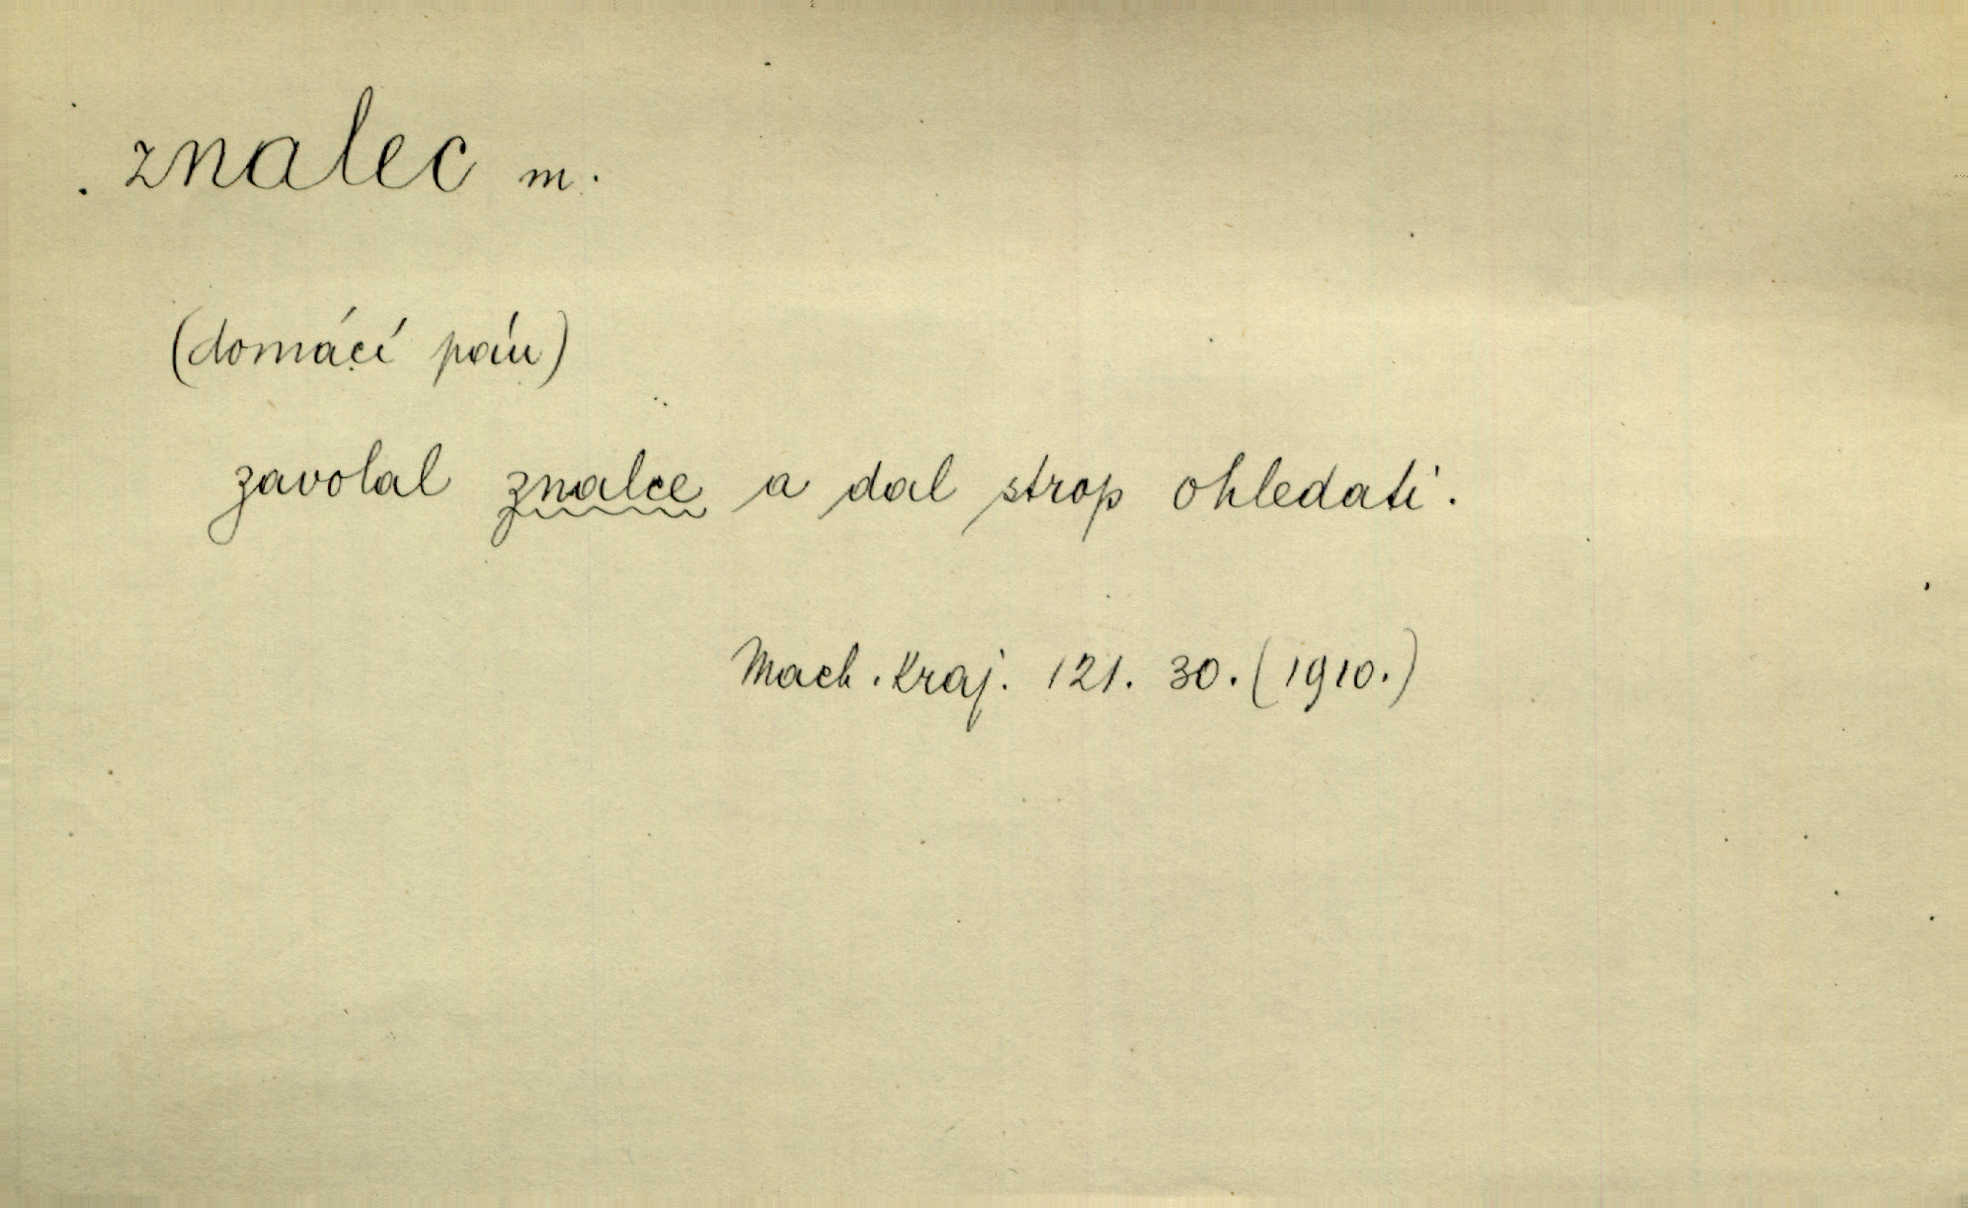 znalec m.
(domácí pán)
zavolal znalce a dal strop ohledati.
Mach. Kraj. 121. 30. (1910.)